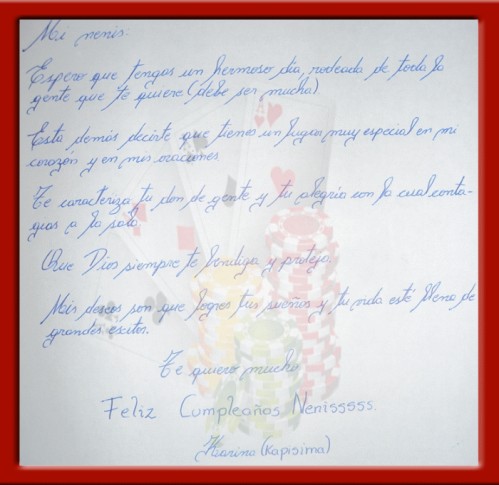 Mi nenis:
Espero que tengas un hermoso día, rodeada de toda la
gente que te quiere (debe ser mucha)
Está demás decirte que tienes un lugar muy especial en mi
corazón y en mis oraciones.
Te caracteriza tu don de gente y tu alegría con la cual conta-
gias a la sala.
Que Dios siempre te bendiga y proteja.
Mis deseos son que logres tus sueños y tu vida esté llena de
grandes exitos.
Te quiero mucho
Feliz Cumpleaños Nenisssss.
(Kapisima)